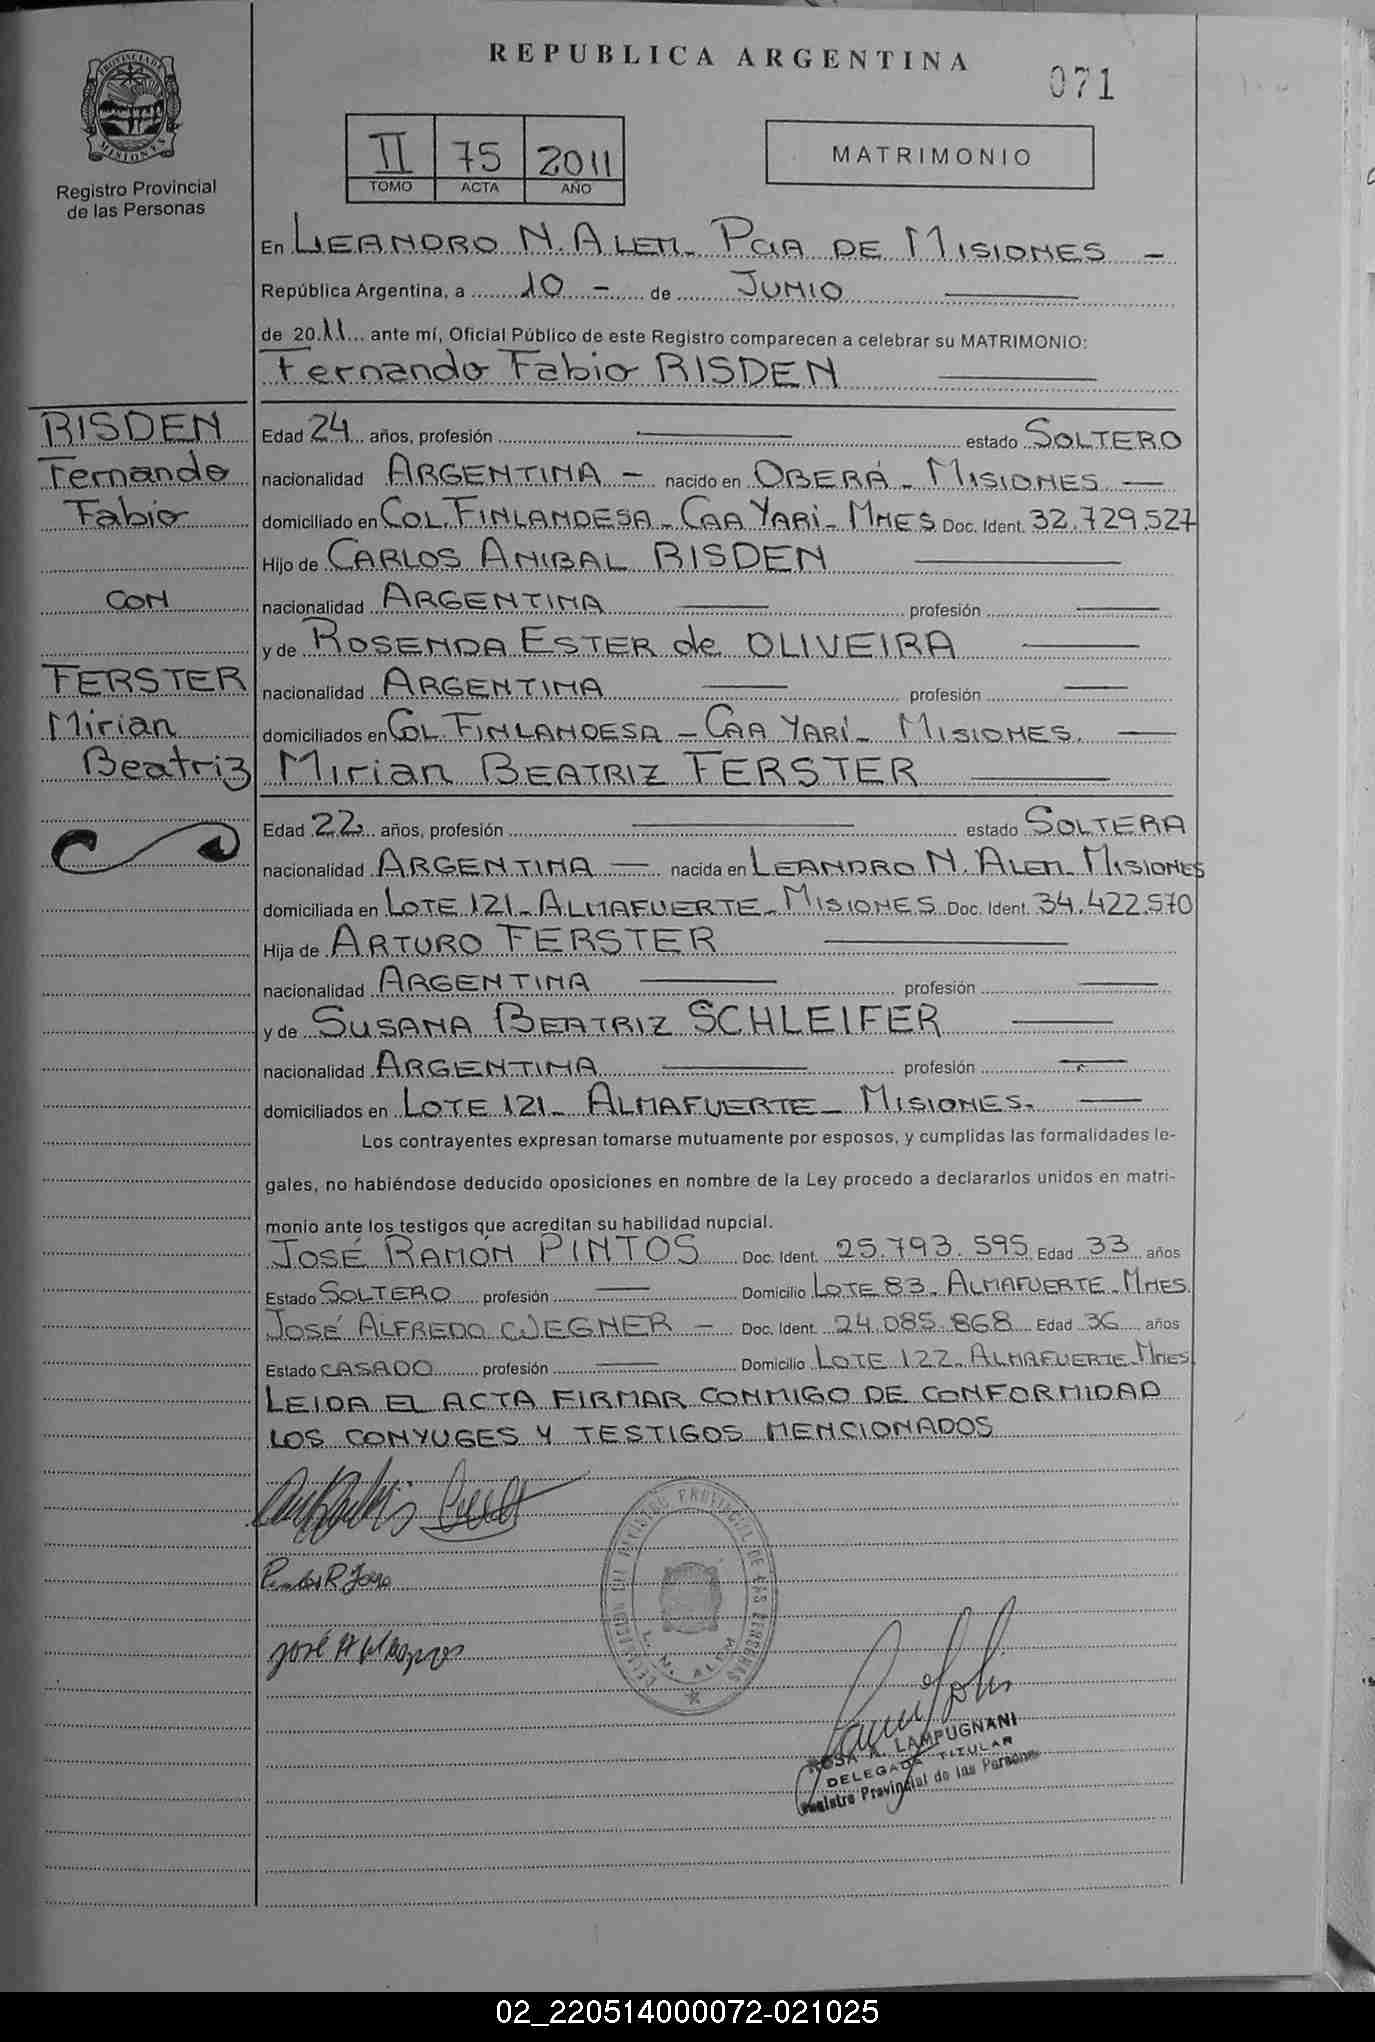 REPUBLICA ARGENTINA
071
PROVINCIA DE MISIONES
Registro Provincial
de las Personas
II 75 2011
TOMO ACTA AÑO
MATRIMONIO
En LEANDRO N. ALEM - PCIA DE MISIONES -
República Argentina, a 10 - de JUNIO
de 2011 ante mí, Oficial Público de este Registro comparecen a celebrar su MATRIMONIO:
Fernando Fabio RISDEN
RISDEN
Fernando
Fabio
CON
FERSTER
Mirian
Beatriz
Edad 24 años, profesión estado SOLTERO
nacionalidad ARGENTINA - nacido en OBERÁ - MISIONES -
domiciliado en COL. FINLANDESA - CAA YARÍ - MNES Doc. Ident. 32.729.527
Hijo de CARLOS ANIBAL RISDEN
nacionalidad ARGENTINA profesión
y de ROSENDA ESTER de OLIVEIRA
nacionalidad ARGENTINA profesión
domiciliados en COL. FINLANDESA - CAA YARÍ - MISIONES.
Mirian BEATRIZ FERSTER
Edad 22 años, profesión estado SOLTERA
nacionalidad ARGENTINA - nacida en LEANDRO N. ALEM - MISIONES
domiciliada en LOTE 121 - ALMAFUERTE - MISIONES Doc. Ident. 34.422.570
Hija de ARTURO FERSTER
nacionalidad ARGENTINA profesión
y de SUSANA BEATRIZ SCHLEIFER
nacionalidad ARGENTINA profesión
domiciliados en LOTE 121 - ALMAFUERTE - MISIONES.
Los contrayentes expresan tomarse mutuamente por esposos, y cumplidas las formalidades le-
gales, no habiéndose deducido oposiciones en nombre de la Ley procedo a declararlos unidos en matri-
monio ante los testigos que acreditan su habilidad nupcial.
JOSÉ RAMÓN PINTOS Doc. Ident. 25.793.595 Edad 33 años
Estado SOLTERO profesión Domicilio LOTE 83 - ALMAFUERTE - MNES.
JOSÉ ALFREDO WEGNER - Doc. Ident. 24.085.868 Edad 36 años
Estado CASADO profesión Domicilio LOTE 122 - ALMAFUERTE - MNES
LEIDA EL ACTA FIRMAR CONMIGO DE CONFORMIDAD
LOS CONYUGES Y TESTIGOS MENCIONADOS
REGISTRO PROVINCIAL DE LAS PERSONAS
L. N. ALEM
José A
ROSA A. LAMPUGNANI
DELEGADA TITULAR
Registro Provincial de las Personas
02_220514000072-021025